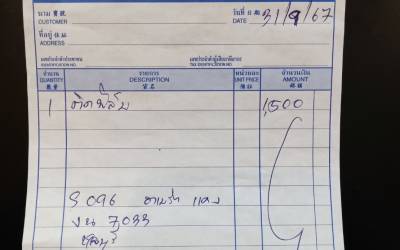 นาม 寶號
CUSTOMER
วันที่ 日期
DATE 31/9/67
ที่อยู่ 住址
ADDRESS
เลขประจำตัวประชาชน
เลขประจำตัวผู้เสียภาษีอากร
จำนวน รายการ หน่วยละ จำนวนเงิน
QUANTITY DESCRIPTION UNIT PRICE AMOUNT
數量 貨名 價銀
1 ติดฟิล์ม 1,500
S 096 แดง
งน 7033
ชลบุรี